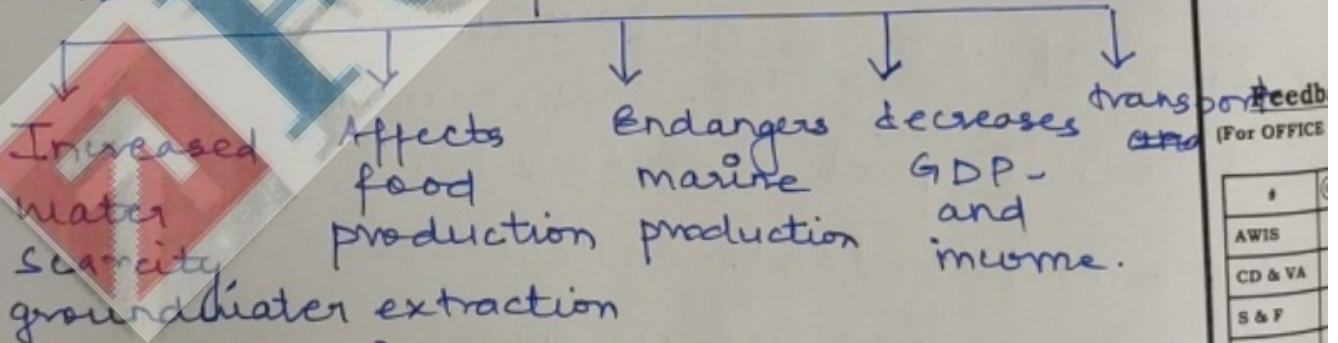 Increased
water
scarcity
groundwater extraction
Affects
food
production
Endangers
marine
production
decreases
GDP-
and
income.
transport
Feedb
(For OFFICE
#
AWIS
CD & VA
S & F